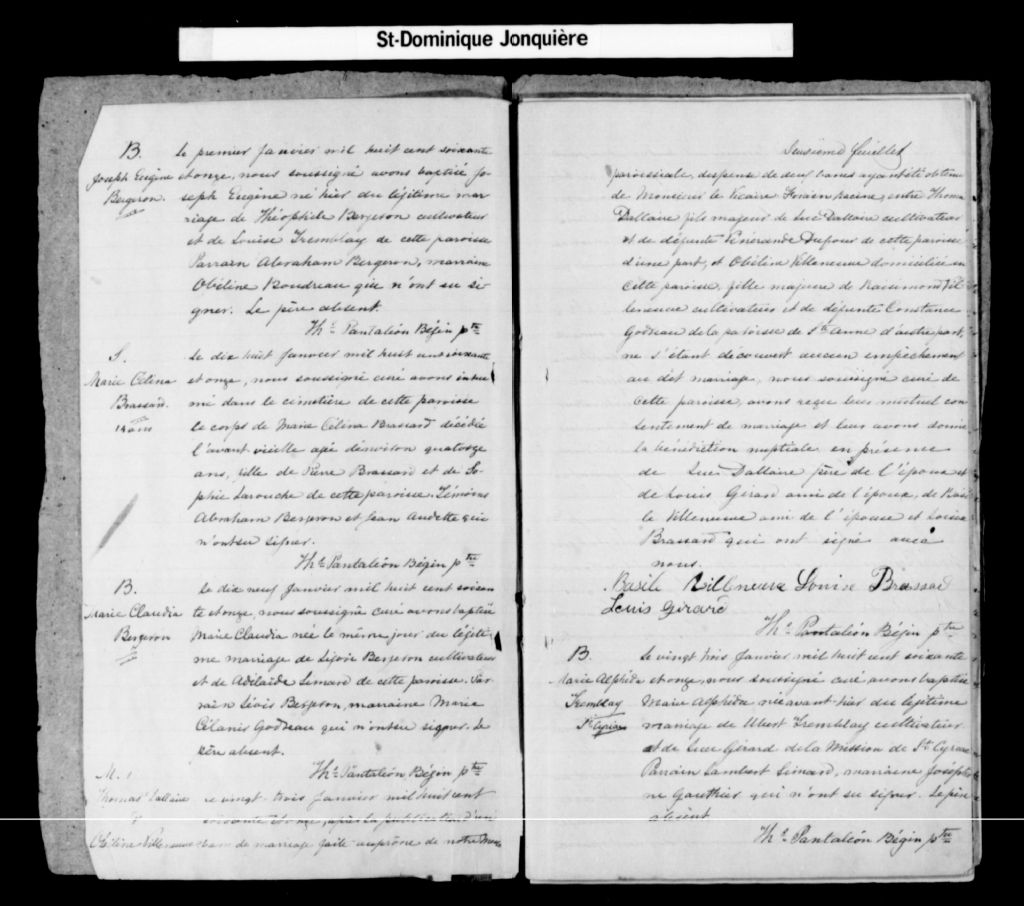 St-Dominique Jonquière
B.
Joseph Eugène
Bergeron.
Le premier Janvier mil huit cent soixante
et onze, nous soussigné avons baptisé Jo-
seph Eugène né hier du légitime mar
riage de Théophile Bergeron cultivateur
et de Louise Tremblay de cette paroisse
Parrain Abraham Bergeron, marraine
Obéline Boudreau qui n'ont su si-
gner. Le père absent.
Ths Pantaléon Bégin ptre
S.
Marie Célina
Brassard.
14 ans
Le dix huit Janvier mil huit cent soixante
et onze, nous soussigné curé avons inhu
mé dans le cimetière de cette paroisse
le corps de Marie Célina Brassard décédée
l'avant veille agé d'environ quatorze
ans, fille de Pierre Brassard et de So-
phie Larouche de cette paroisse. Témoins
Abraham Bergeron et Jean Audette qui
n'ont su signer.
Ths Pantaléon Bégin ptre
B.
Marie Claudia
Bergeron
Le dix neuf Janvier mil huit cent soixan
te et onze, nous soussigné curé avons baptisé
Marie Claudia née le même jour du légiti
me mariage de Bergeron cultivateur
et de Adélaïde Simard de cette paroisse. Par
rain Bergeron, marraine Marie
Godreau qui n'ont su signer. Le
père absent.
Ths Pantaléon Bégin ptre
M.
Thomas Dallaire
&
Obéline Villeneuve
Le vingt trois Janvier mil huit cent
soixante et onze, après la publication d'un
ban de mariage faite au prône de notre messe
feuillet
paroissiale, dispense de deux bans ayant été obtenue
de Monsieur le Vicaire Forain Racine, entre Thomas
Dallaire fils majeur de Luc Dallaire cultivateur
et de défunte Vénérande Dufour de cette paroisse
d'une part, et Obéline Villeneuve domiciliée en
cette paroisse, fille majeure de Raisimond Vil
leneuve cultivateur et de défunte Constance
Godreau de la paroisse de Ste Anne d'autre part,
ne s'étant découvert aucun empêchement
au dit mariage, nous soussigné curé de
cette paroisse, avons reçu leur mutuel con
sentement de mariage et leur avons donné
la bénédiction nuptiale en présence
de Luc Dallaire père de l'époux et
de Louis Girard ami de l'époux, de Basi
le Villeneuve ami de l'épouse et Louise
Brassard qui ont signé avec
nous.
Basile Villeneuve Louise Brassard
Louis Girard
Ths Pantaléon Bégin ptre
B.
Marie Alphéda
Tremblay
St Cyriac
Le vingt trois Janvier mil huit cent soixante
et onze, nous soussigné curé avons baptisé
Marie Alphéda née avant-hier du légitime
mariage de Ubert Tremblay cultivateur
et de Luce Girard de la Mission de St Cyriac
Parrain Lambert Simard, marraine Joséphi
ne Gauthier qui n'ont su signer. Le père
absent
Ths Pantaléon Bégin ptre